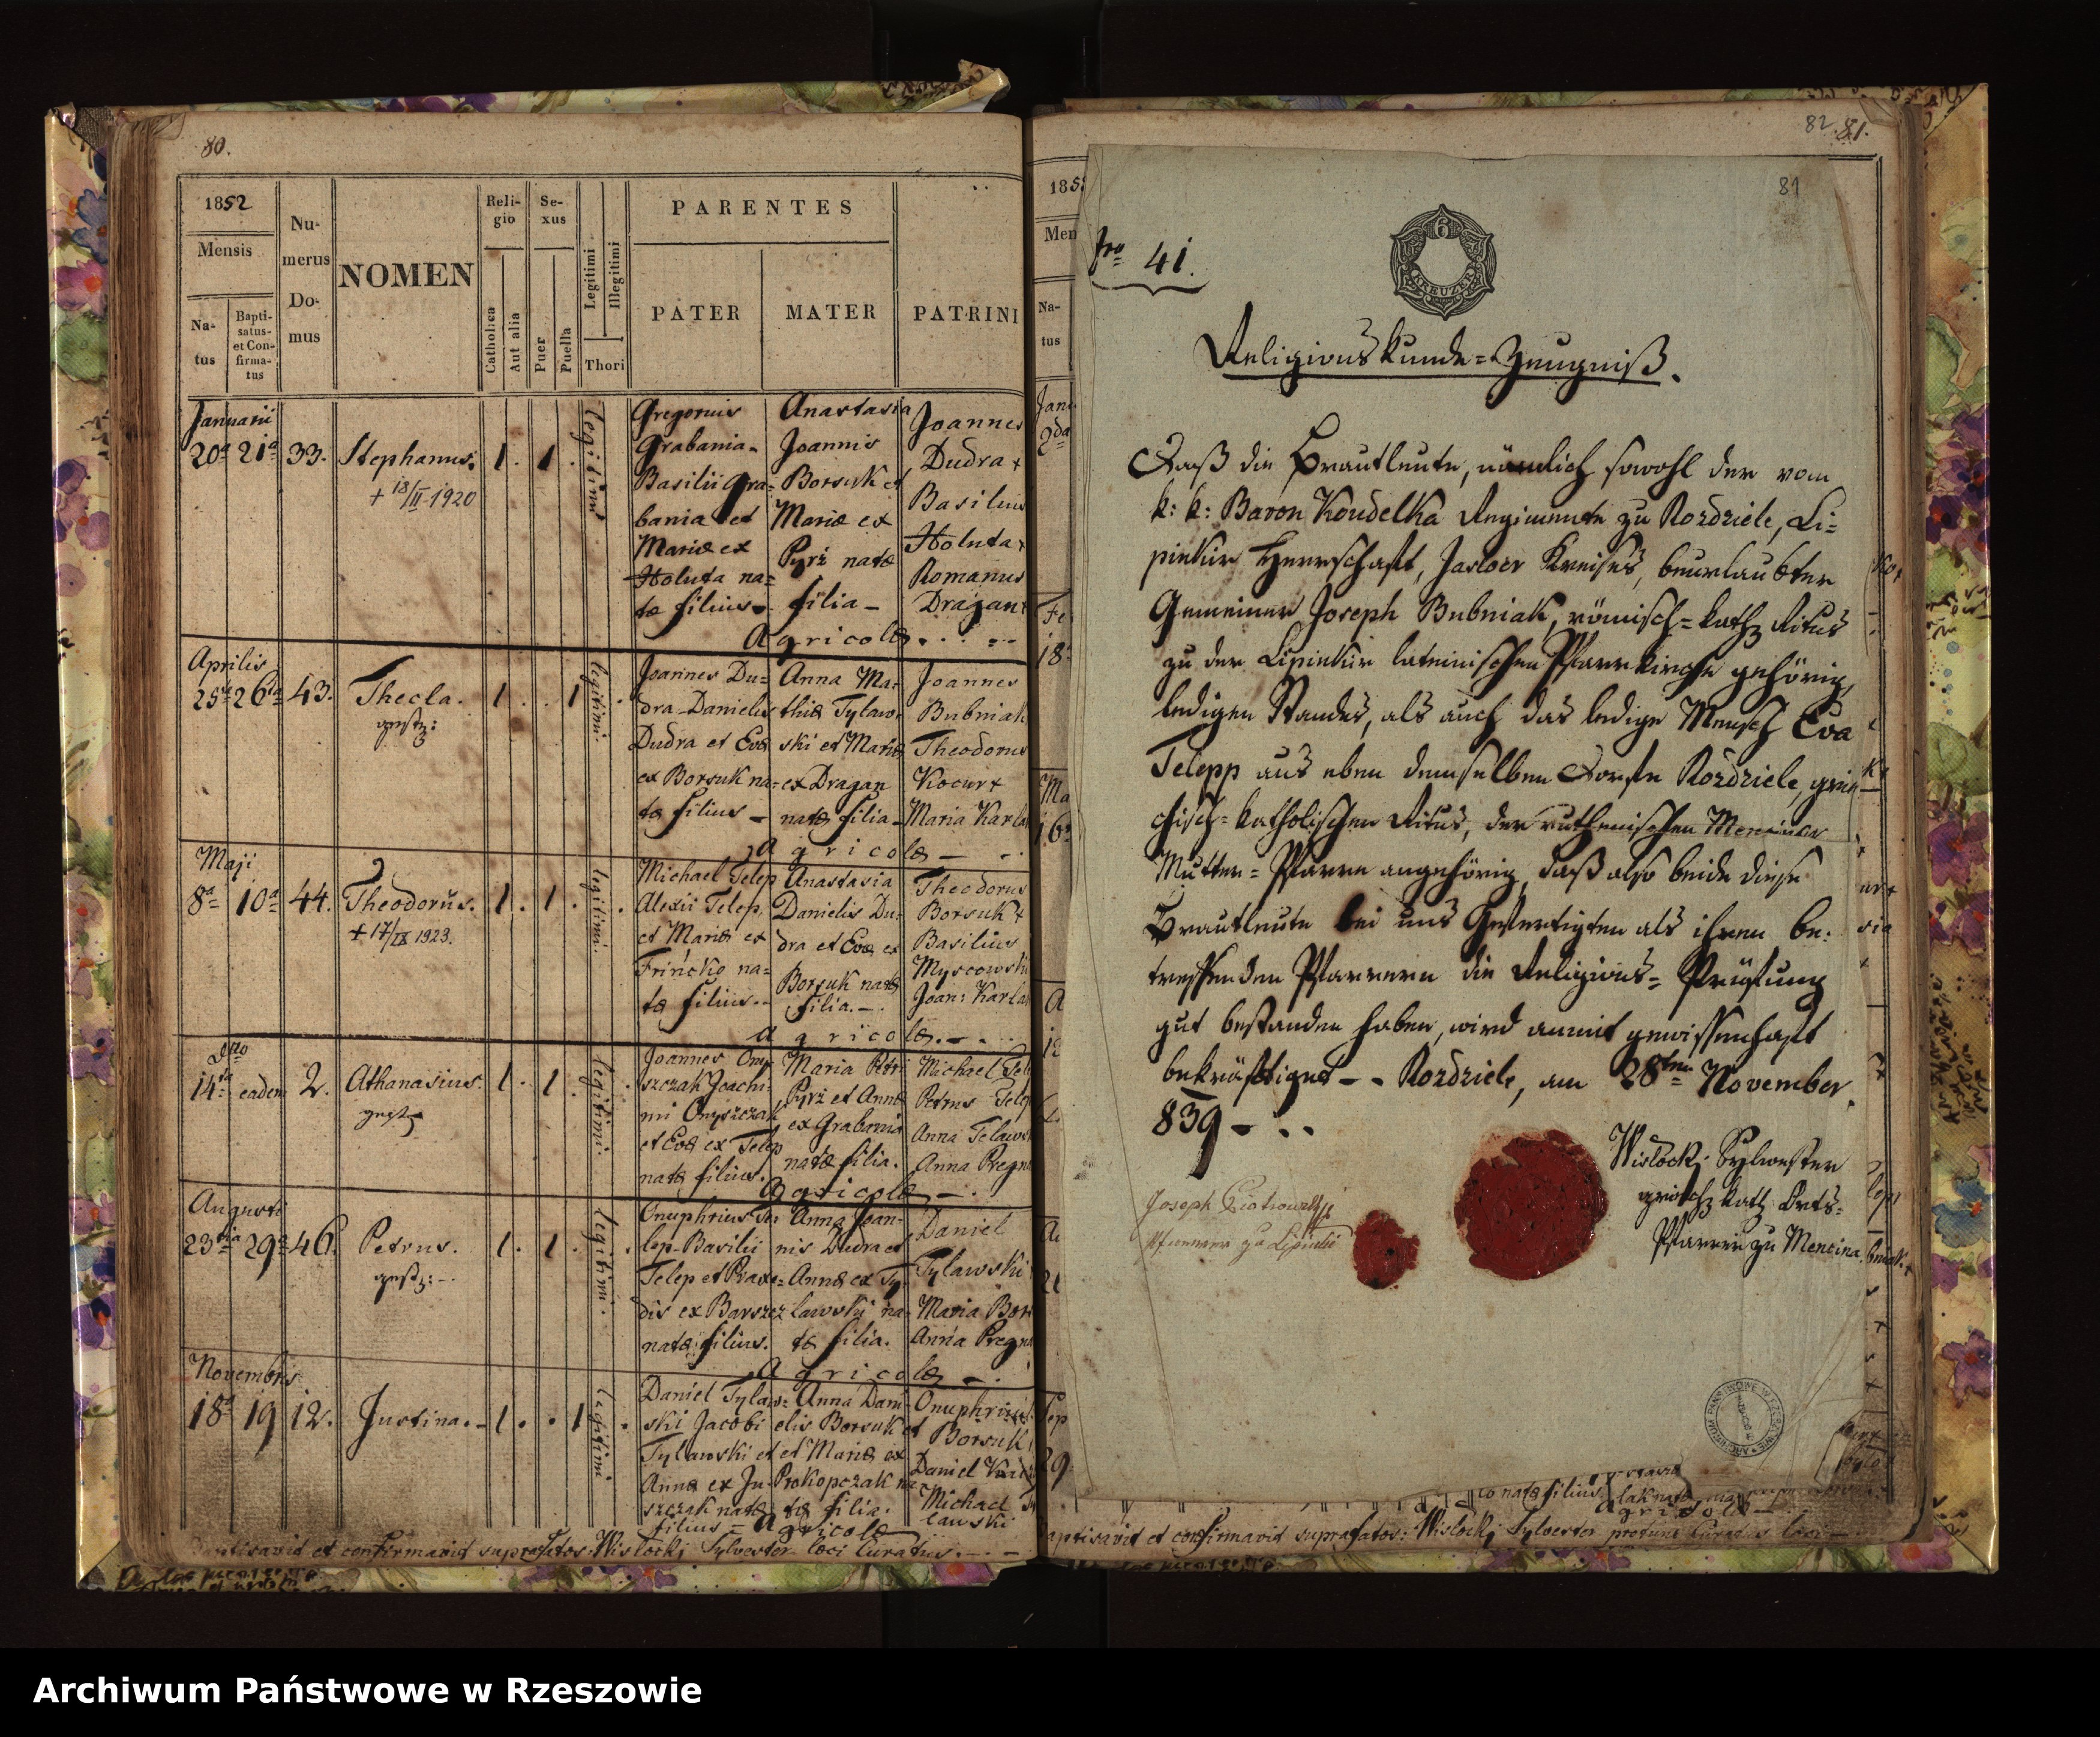 80.
1852
Mensis
Na-
tus
Bapti-
satus-
et Con-
firma-
tus
Nu-
merus
Do-
mus
NOMEN
Reli-
gio
Catholica
Aut alia
Se-
xus
Puer
Puella
Legitimi
Illegitimi
Thori
PARENTES
PATER
MATER
PATRINI
Januarii
20a 21a 33. Stephanus. 1. 1. legitimi
+ 18/II 1920
Gregorius
Grabania-
Basilii Gra-
bania et
Mariæ ex
Holuta na-
tæ filius.
Anastasia
Joannis
Borsuk et
Mariæ ex
Pyrz natæ
filia-
Joannes
Dudra +
Basilius
Holuta +
Romanus
Dragan +
Agricolæ.
Aprilis
25ta 26ta 43. Thecla. 1. 1 legitimi.
Joannes Du-
dra Danielis
Dudra et Evæ
ex Borsuk na-
tæ filius-
Anna Ma-
thiæ Tylaw-
ski et Mariæ
ex Dragan
natæ filia-
Joannes
Bubniak
Theodorus
Kocur +
Maria Karla
Agricolæ-
Maji
8a 10a 44. Theodorus. 1. 1. legitimi.
+ 17/IX 1923.
Michael Telep
Alexii Telep
et Mariæ ex
Frińcko na-
tæ filius..
Anastasia
Danielis Du-
dra et Evæ ex
Borsuk natæ
filia.-
Theodorus
Borsuk +
Basilius
Myscowski
Joan: Karla
Agricolæ.-
dtto
14ta eadem 2. Athanasius. 1. 1. legitimi.
Joannes Ony-
szczak Joachi-
mi Onyszczak
et Evæ ex Telep
natæ filius.
Maria Petri
Pyrz et Annæ
ex Grabania
natæ filia.
Michael Tel
Petrus Telep
Anna Telaws
Anna Pregn
Agricolæ-.
Augusti
23tia 29a 46. Petrus. 1. 1. legitimi.
Onuphrius Te-
lep Basilii
Telep et Praxe-
dis ex Barszcz
natæ filius.
Anna Joan-
nis Dudra et
Annæ ex Ty-
lawski na-
tæ filia.
Daniel
Tylawski
Maria Bor
Anna Pregn
Agricolæ-.
Novembris
18a 19 12. Justina.- 1. 1 legitimi
Daniel Tylaw-
ski Jacobi
Tylawski et
Annæ ex Ju-
szczak natæ
filius-
Anna Dani-
elis Borsuk
et Mariæ ex
Prokopczak na-
tæ filia.
Onuphrius
Borsuk
Daniel
Michael
lawski
Agricolæ
Baptisavid et confirmavid suprafatos: Wislocki Sylvester loci Curatus.-
82. 81.
81
185
Men
Na-
tus
Nro 41.
6
KREUZER
Religionskunde-Zeugniß.
Daß die Brautleute, nämlich sowohl der vom
k: k: Baron Koudelka Regimente zu Rozdziele, Li-
pinkier Herrschaft, Jasloer Kreises, beurlaubter
Gemeiner Joseph Bubniak, römisch-kath. Ritus
zu der Lipinkier lateinischen Pfarrkirche gehörig,
ledigen Standes, als auch das ledige Mensch Eva
Telepp aus eben demselben Dorfe Rozdziele, grie-
chisch-katholischen Ritus, der ruthenischen Menciner
Mutter-Pfarre angehörig, daß also beide diese
Brautleute bei uns Gefertigten als ihren be-
treffenden Pfarrern die Religions-Prüfung
gut bestanden haben, wird anmit gewissenhaft
bekräftiget-- Rozdziele, am 28ten November
839-..
Wislocki Sylwester
griech. kath. Orts-
Pfarrer zu Mencina
Joseph Piotrowski
Pfarrer zu Lipinki
co natæ filius
Agricolæ
Baptisavid et confirmavid suprafatos: Wislocki Sylvester
Archiwum Państwowe w Rzeszowie